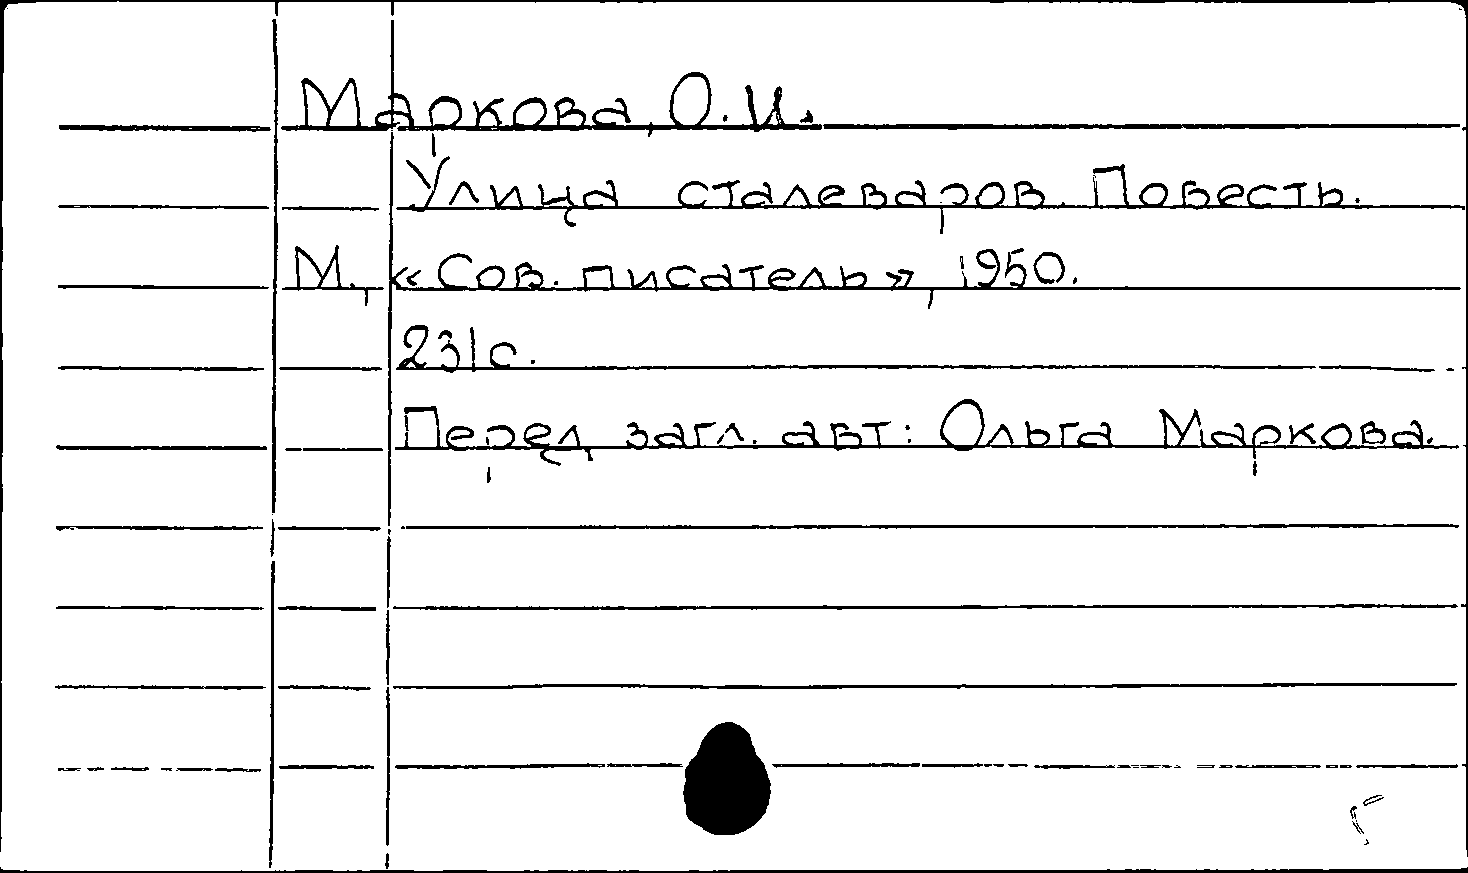 Маркова, О. И.
Улица сталеваров. Повесть.
М., «Сов. писатель», 1950.
231 с.
Перед загл. авт: Ольга Маркова.